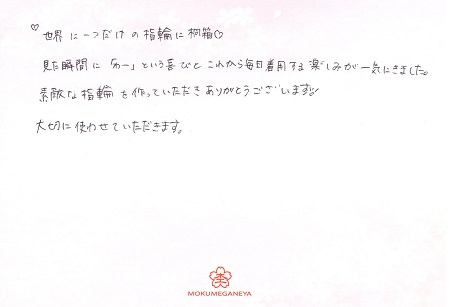 ♡世界に一つだけの指輪に桐箱♡
見た瞬間に「わー」という喜びと これから毎日着用する楽しみが一気にきました。
素敵な指輪を作っていただきありがとうございます!!
大切に使わせていただきます。
MOKUMEGANEYA